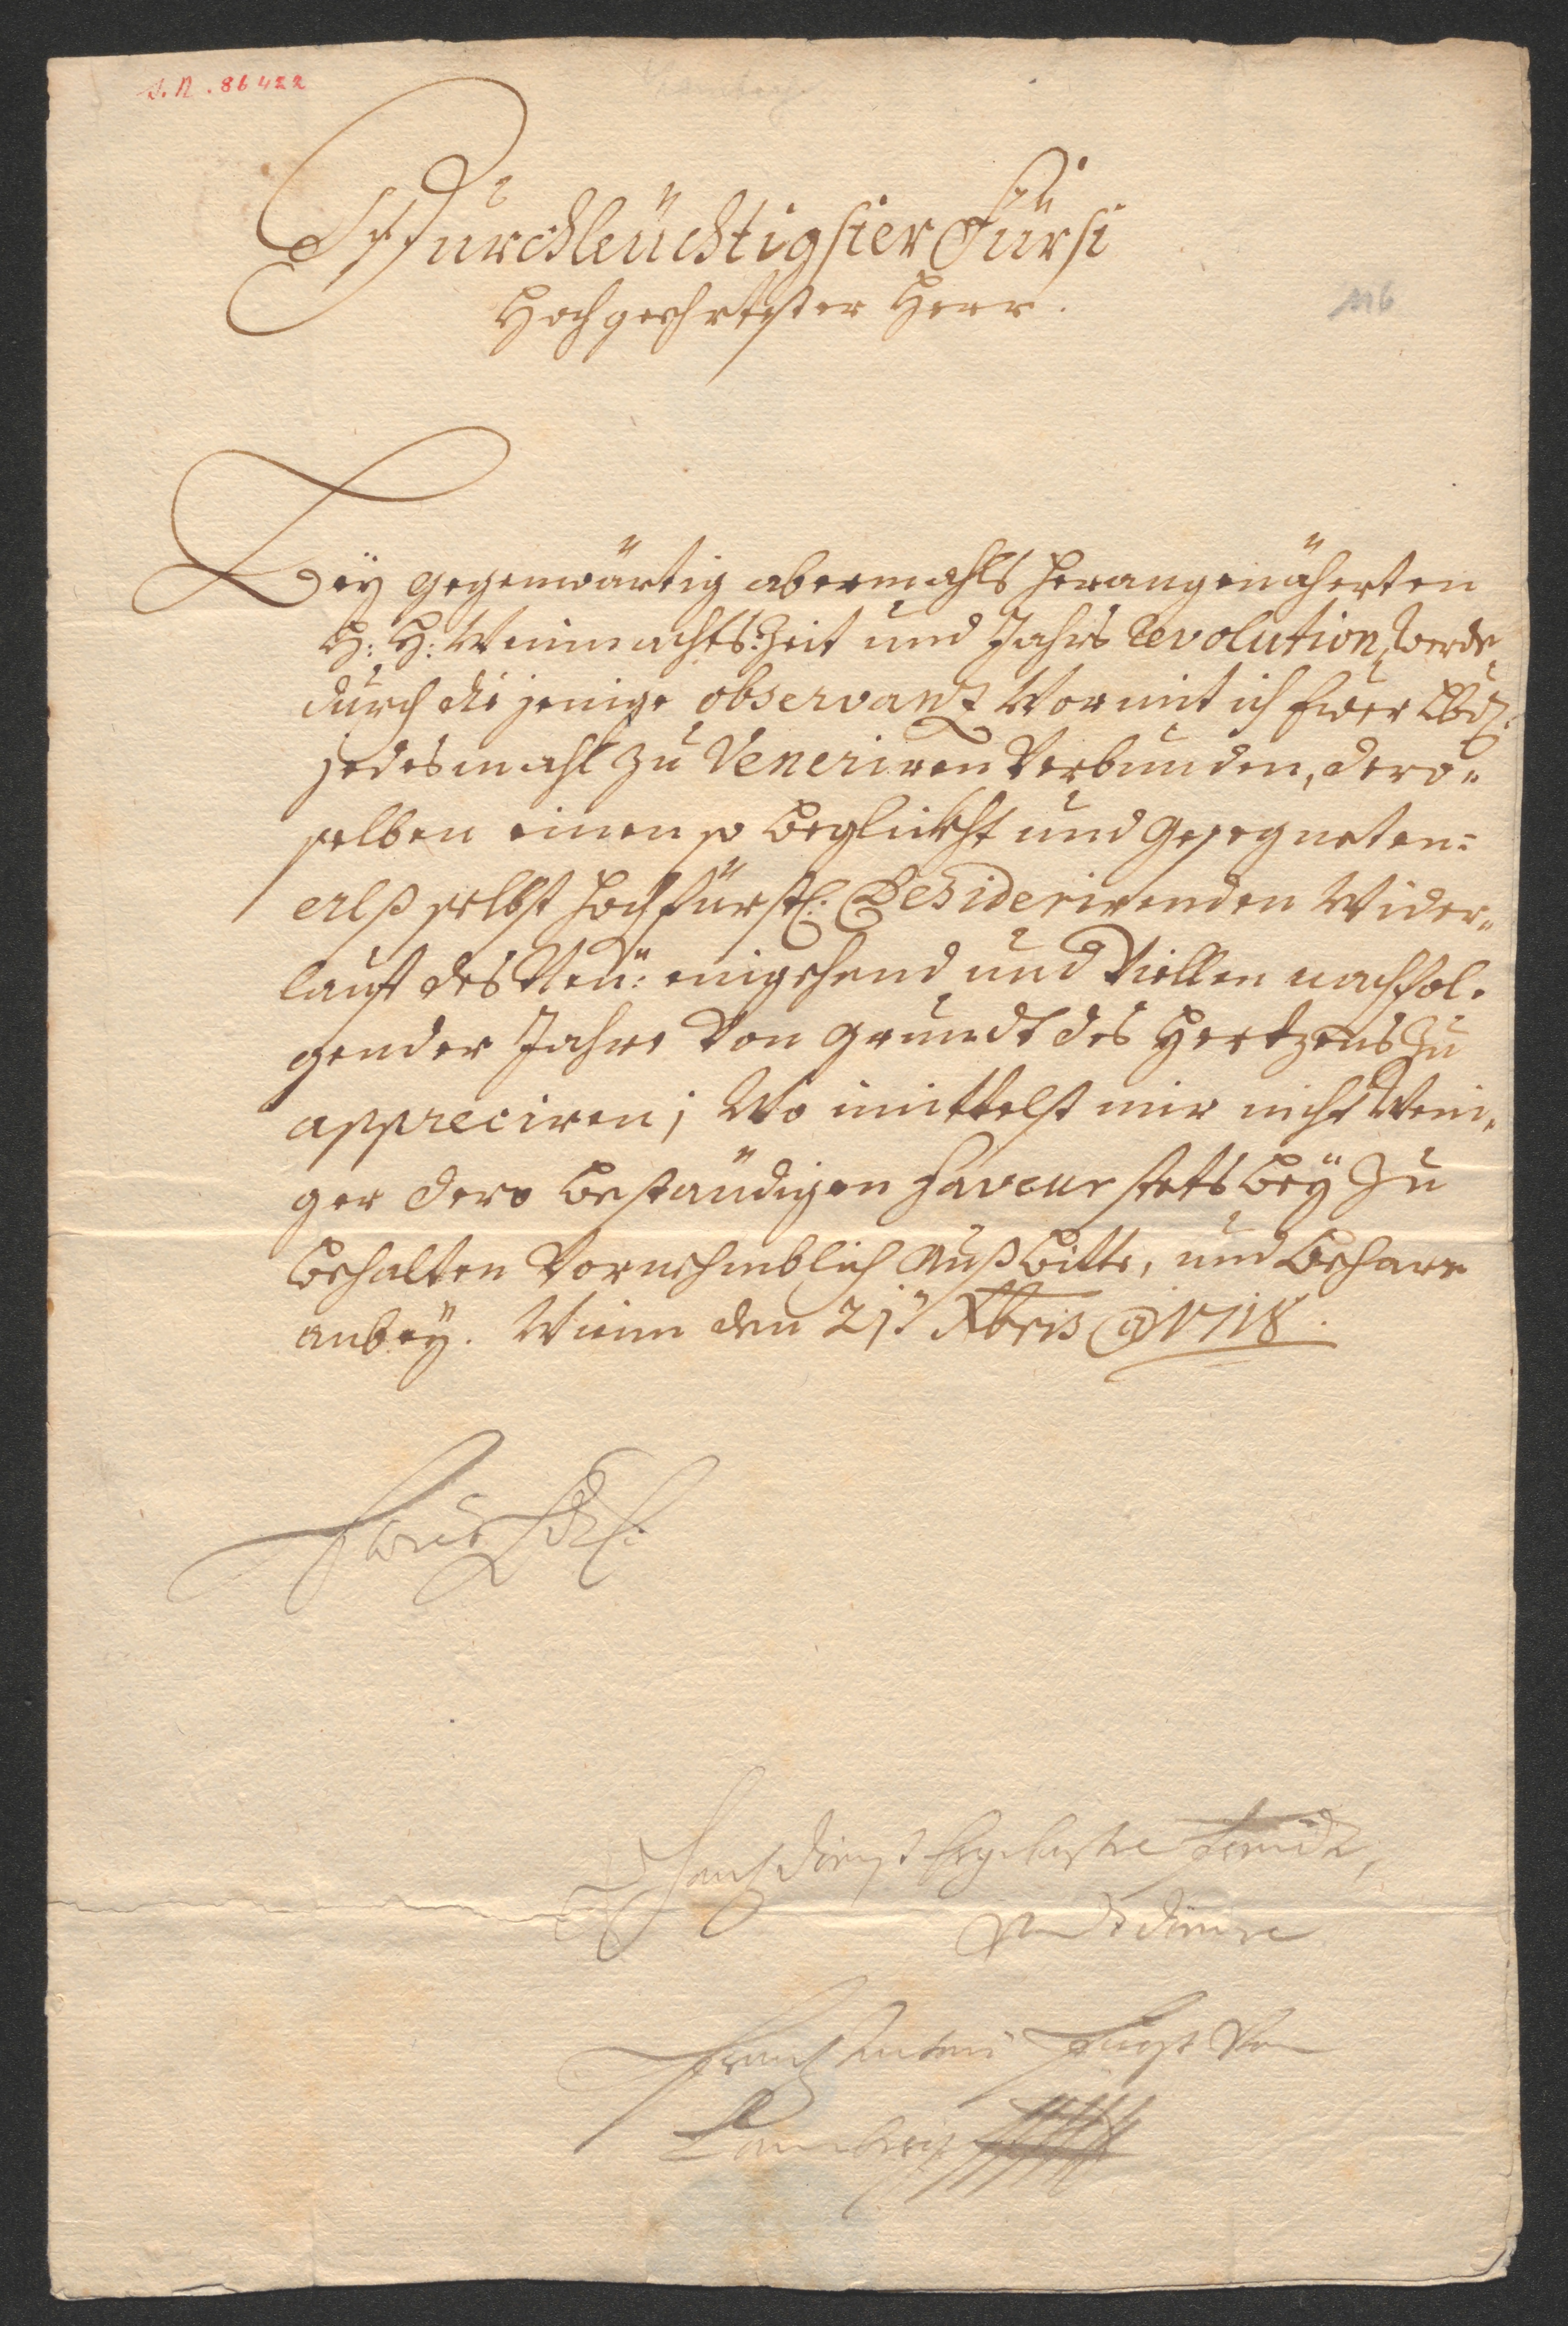 J.N. 86422
116
Durchleüchtigster Fürst
Hochgeehrtister Herr.
Bey gegenwärtig abermahls herangenäherten
H: H: Weinnachts: Zeit und Jahrs Revolution, werde
durch die jenige observanz Wormit ich Euer Lbd.
jedesmahl zu Veneriren Verbunden, dero„
selben einen so beglückht und Gesegneten:
alß selbst hochfürstl. Desiderirenden Wider„
lauff des Neü: eingehend und Viellen nachfol„
gender Jahre Von grundt des Hertzens zu
appreciren; Wo inmittelst mir nicht Weni„
ger dero beständigen Faveur stets bey zu
behalten Vornehmblich Außbitte, und beharre
anbey. Wienn den 21t. Xbris @ 1718.
Euer Lbd.
dienst Ergebester
Diener
Frantz Antoni Fürst Von
Lamberg